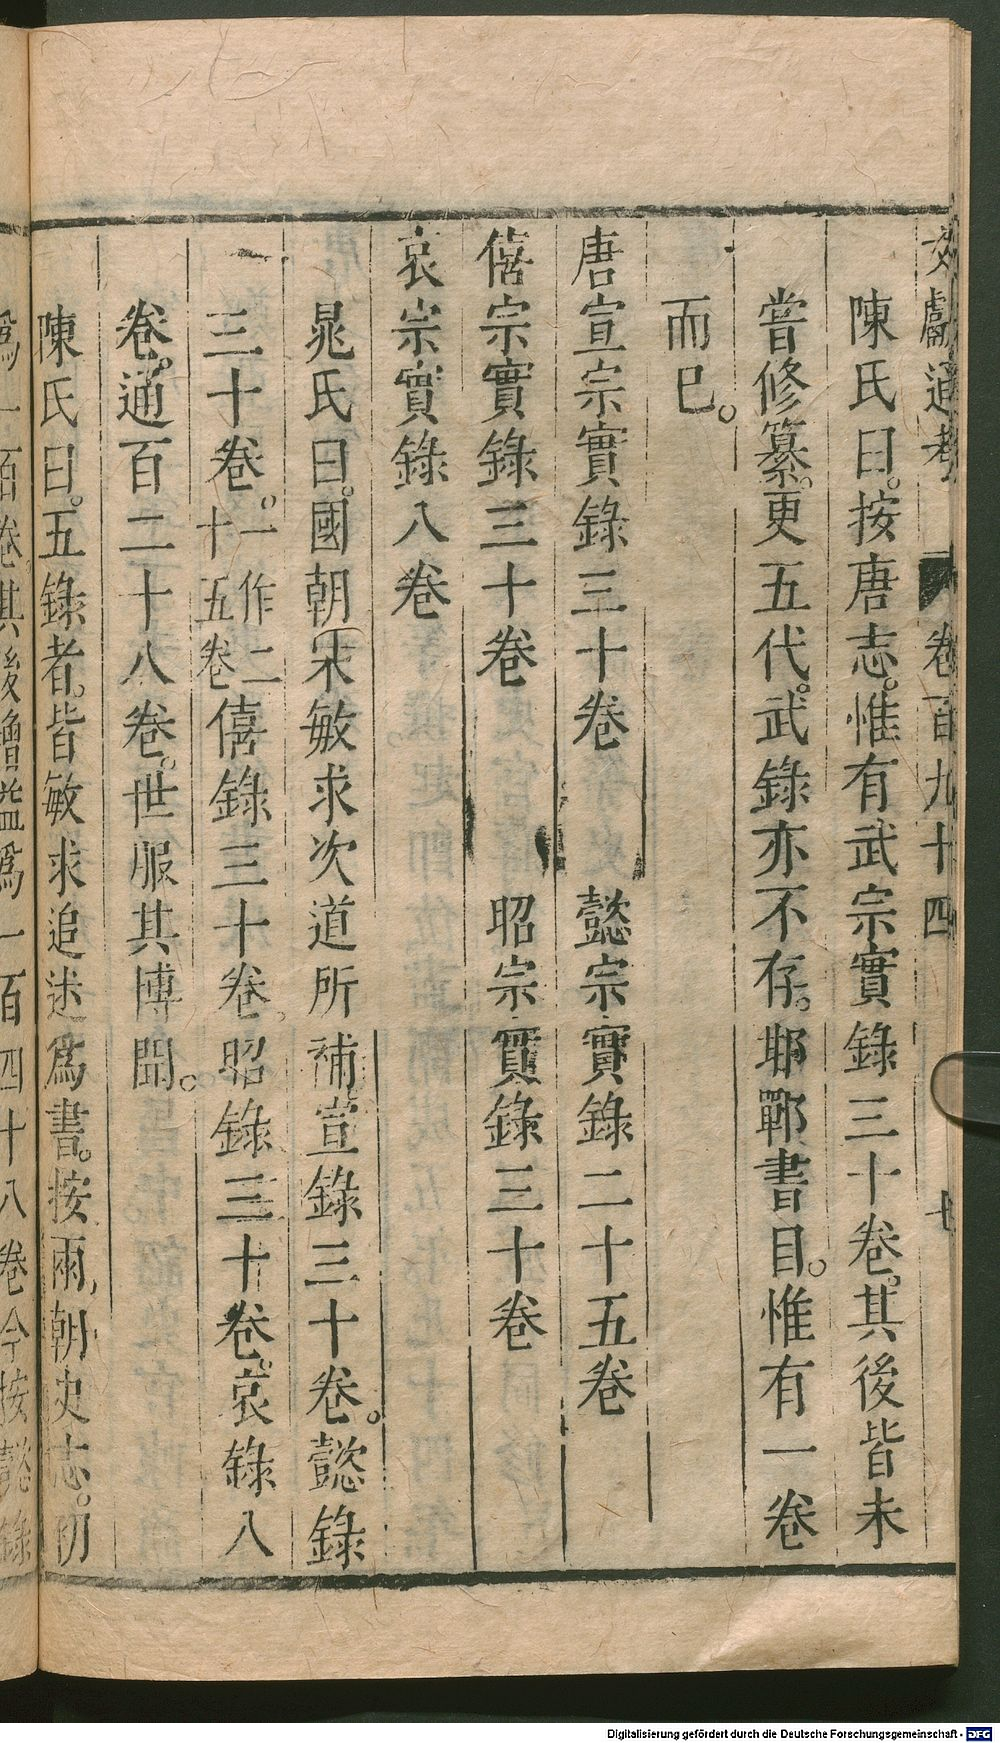 文獻通考 卷百九十四 七
陳氏曰。按唐志。惟有武宗實錄三十卷。其後皆未
嘗修纂。更五代。武錄亦不存。邯鄲書目。惟有一卷
而巳。
唐宣宗實錄三十卷 懿宗實錄二十五卷
僖宗實錄三十卷 昭宗實錄三十卷
哀宗實錄八卷
晁氏曰。國朝宋敏求次道所補宣錄三十卷。懿錄
三十卷。一作二十五卷僖錄三十卷。昭錄三十卷。哀錄八
卷。通百二十八卷。世服其博聞。
陳氏曰。五錄者。皆敏求追述爲書。按兩朝史志。初
爲一百卷。其後增益爲一百四十八卷今按懿錄
Digitalisierung gefördert durch die Deutsche Forschungsgemeinschaft - DFG